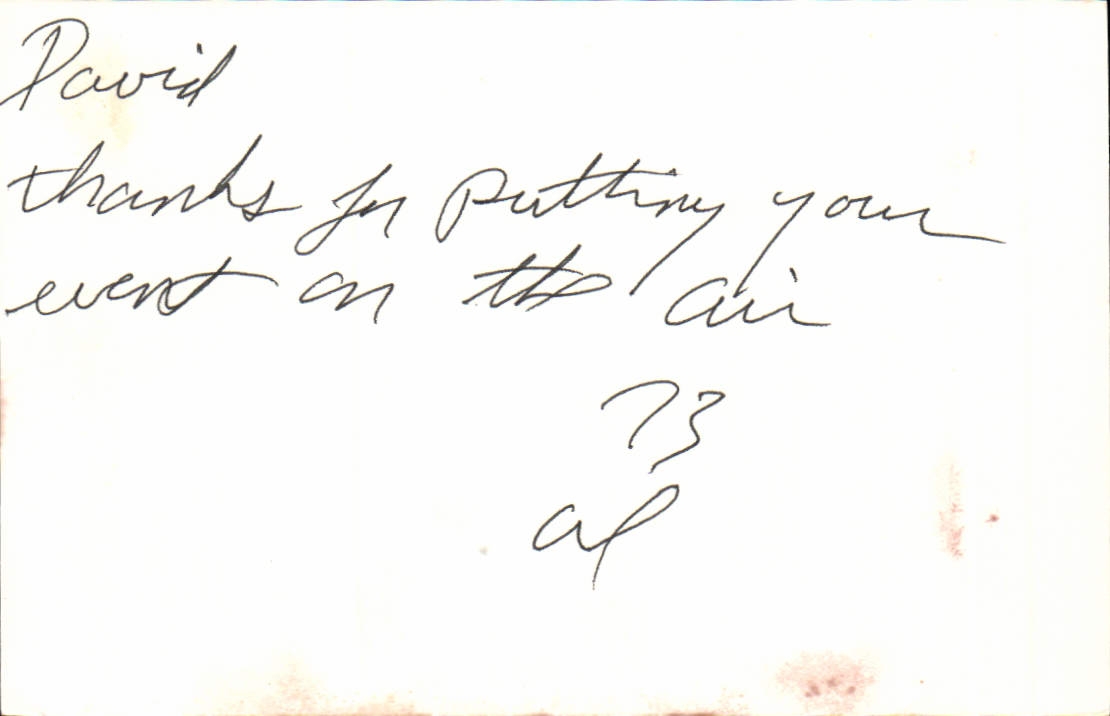 David
thanks for putting your
event on the air
73
Al